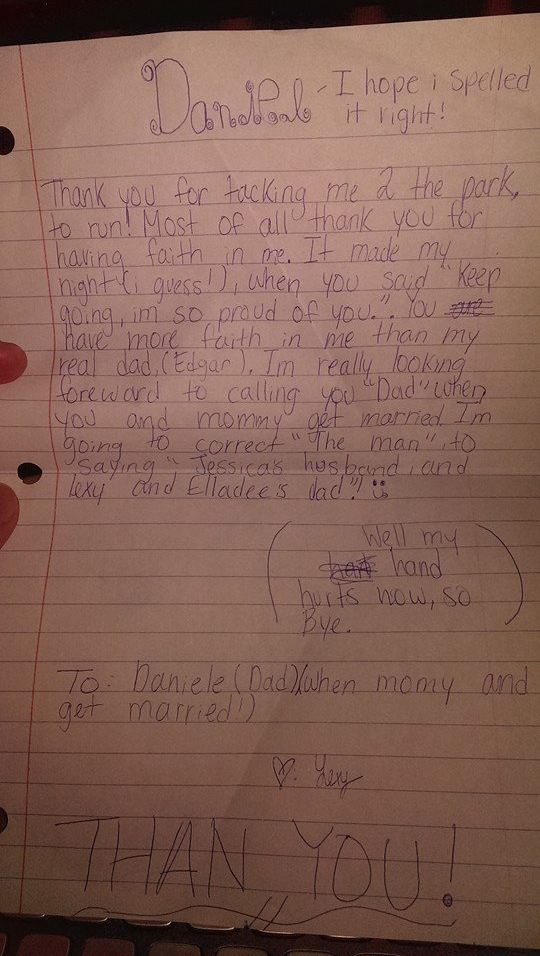 Daniel - I hope i spelled
it right!
Thank you for tacking me 2 the park,
to run! Most of all thank you for
having faith in me. It made my
night (i guess!), when you said "Keep
going, im so proud of you.". You are
have more faith in me than my
real dad, (Edgar). Im really looking
foreward to calling you "Dad" when
you and mommy get married. Im
going to correct "The man", to
saying "Jessica's husband, and
lexy and Elladee's dad"! :)
Well my
hand
hurts now, so
Bye.
To: Daniele (Dad)(when momy and
get married!)
♡: Lexy
THAN YOU!